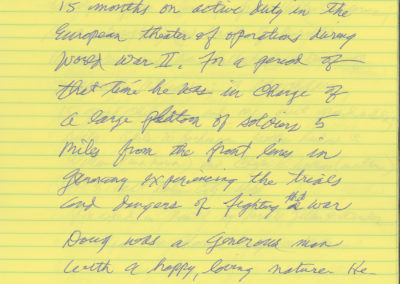 15 months on active duty in the
European theater of operations during
World War II. For a period of
that time he was in charge of
a large platoon of soldiers 5
miles from the front lines in
Germany experiencing the trials
and dangers of fighting that war
Doug was a generous man
with a happy, loving nature. He